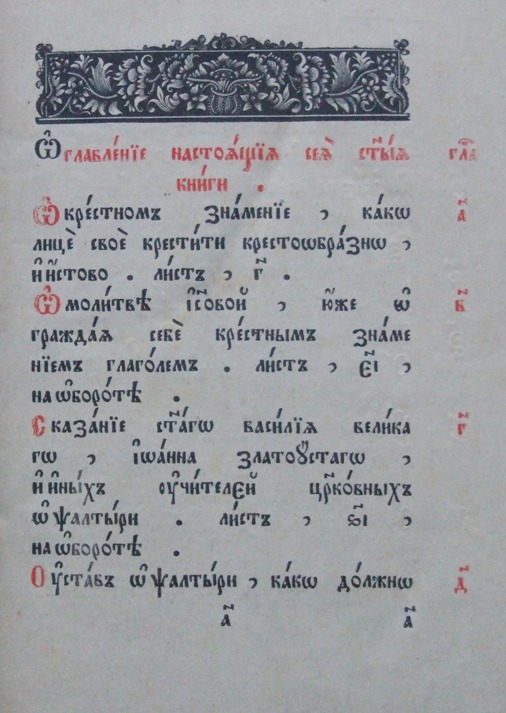 Ѡ҆главле́нїе настоѧ́щїѧ сеѧ̀ ст҃ы́ѧ гла҃
кни́ги .
Ѡ҆ кре́стномъ зна́менїе , ка́кѡ а҃
лицѐ своѐ крести́ти крестоѡбра́знѡ ,
и҆ и҆́стово . ли́стъ , г҃ .
Ѡ҆ моли́твѣ і҆с҃овой , ю҆́же ѡ҆ в҃
гражда́ѧ себѐ кре́стнымъ зна́ме
нїемъ глаго́лемъ . ли́стъ , є҃і ,
на ѡ҆боро́тѣ .
Сказа́нїе ст҃а́гѡ васи́лїѧ вели́ка г҃
гѡ , і҆ѡа́нна златоꙋ́стагѡ ,
и҆ и҆ны́хъ ᲂу҆чи́телєй цр҃ко́вныхъ
ѡ҆ ѱалты́ри . ли́стъ , ѕ҃і ,
на ѡ҆боро́тѣ .
Оу҆ста́въ ѡ҆ ѱалты́ри , ка́кѡ до́лжнѡ д҃
а҃ а҃